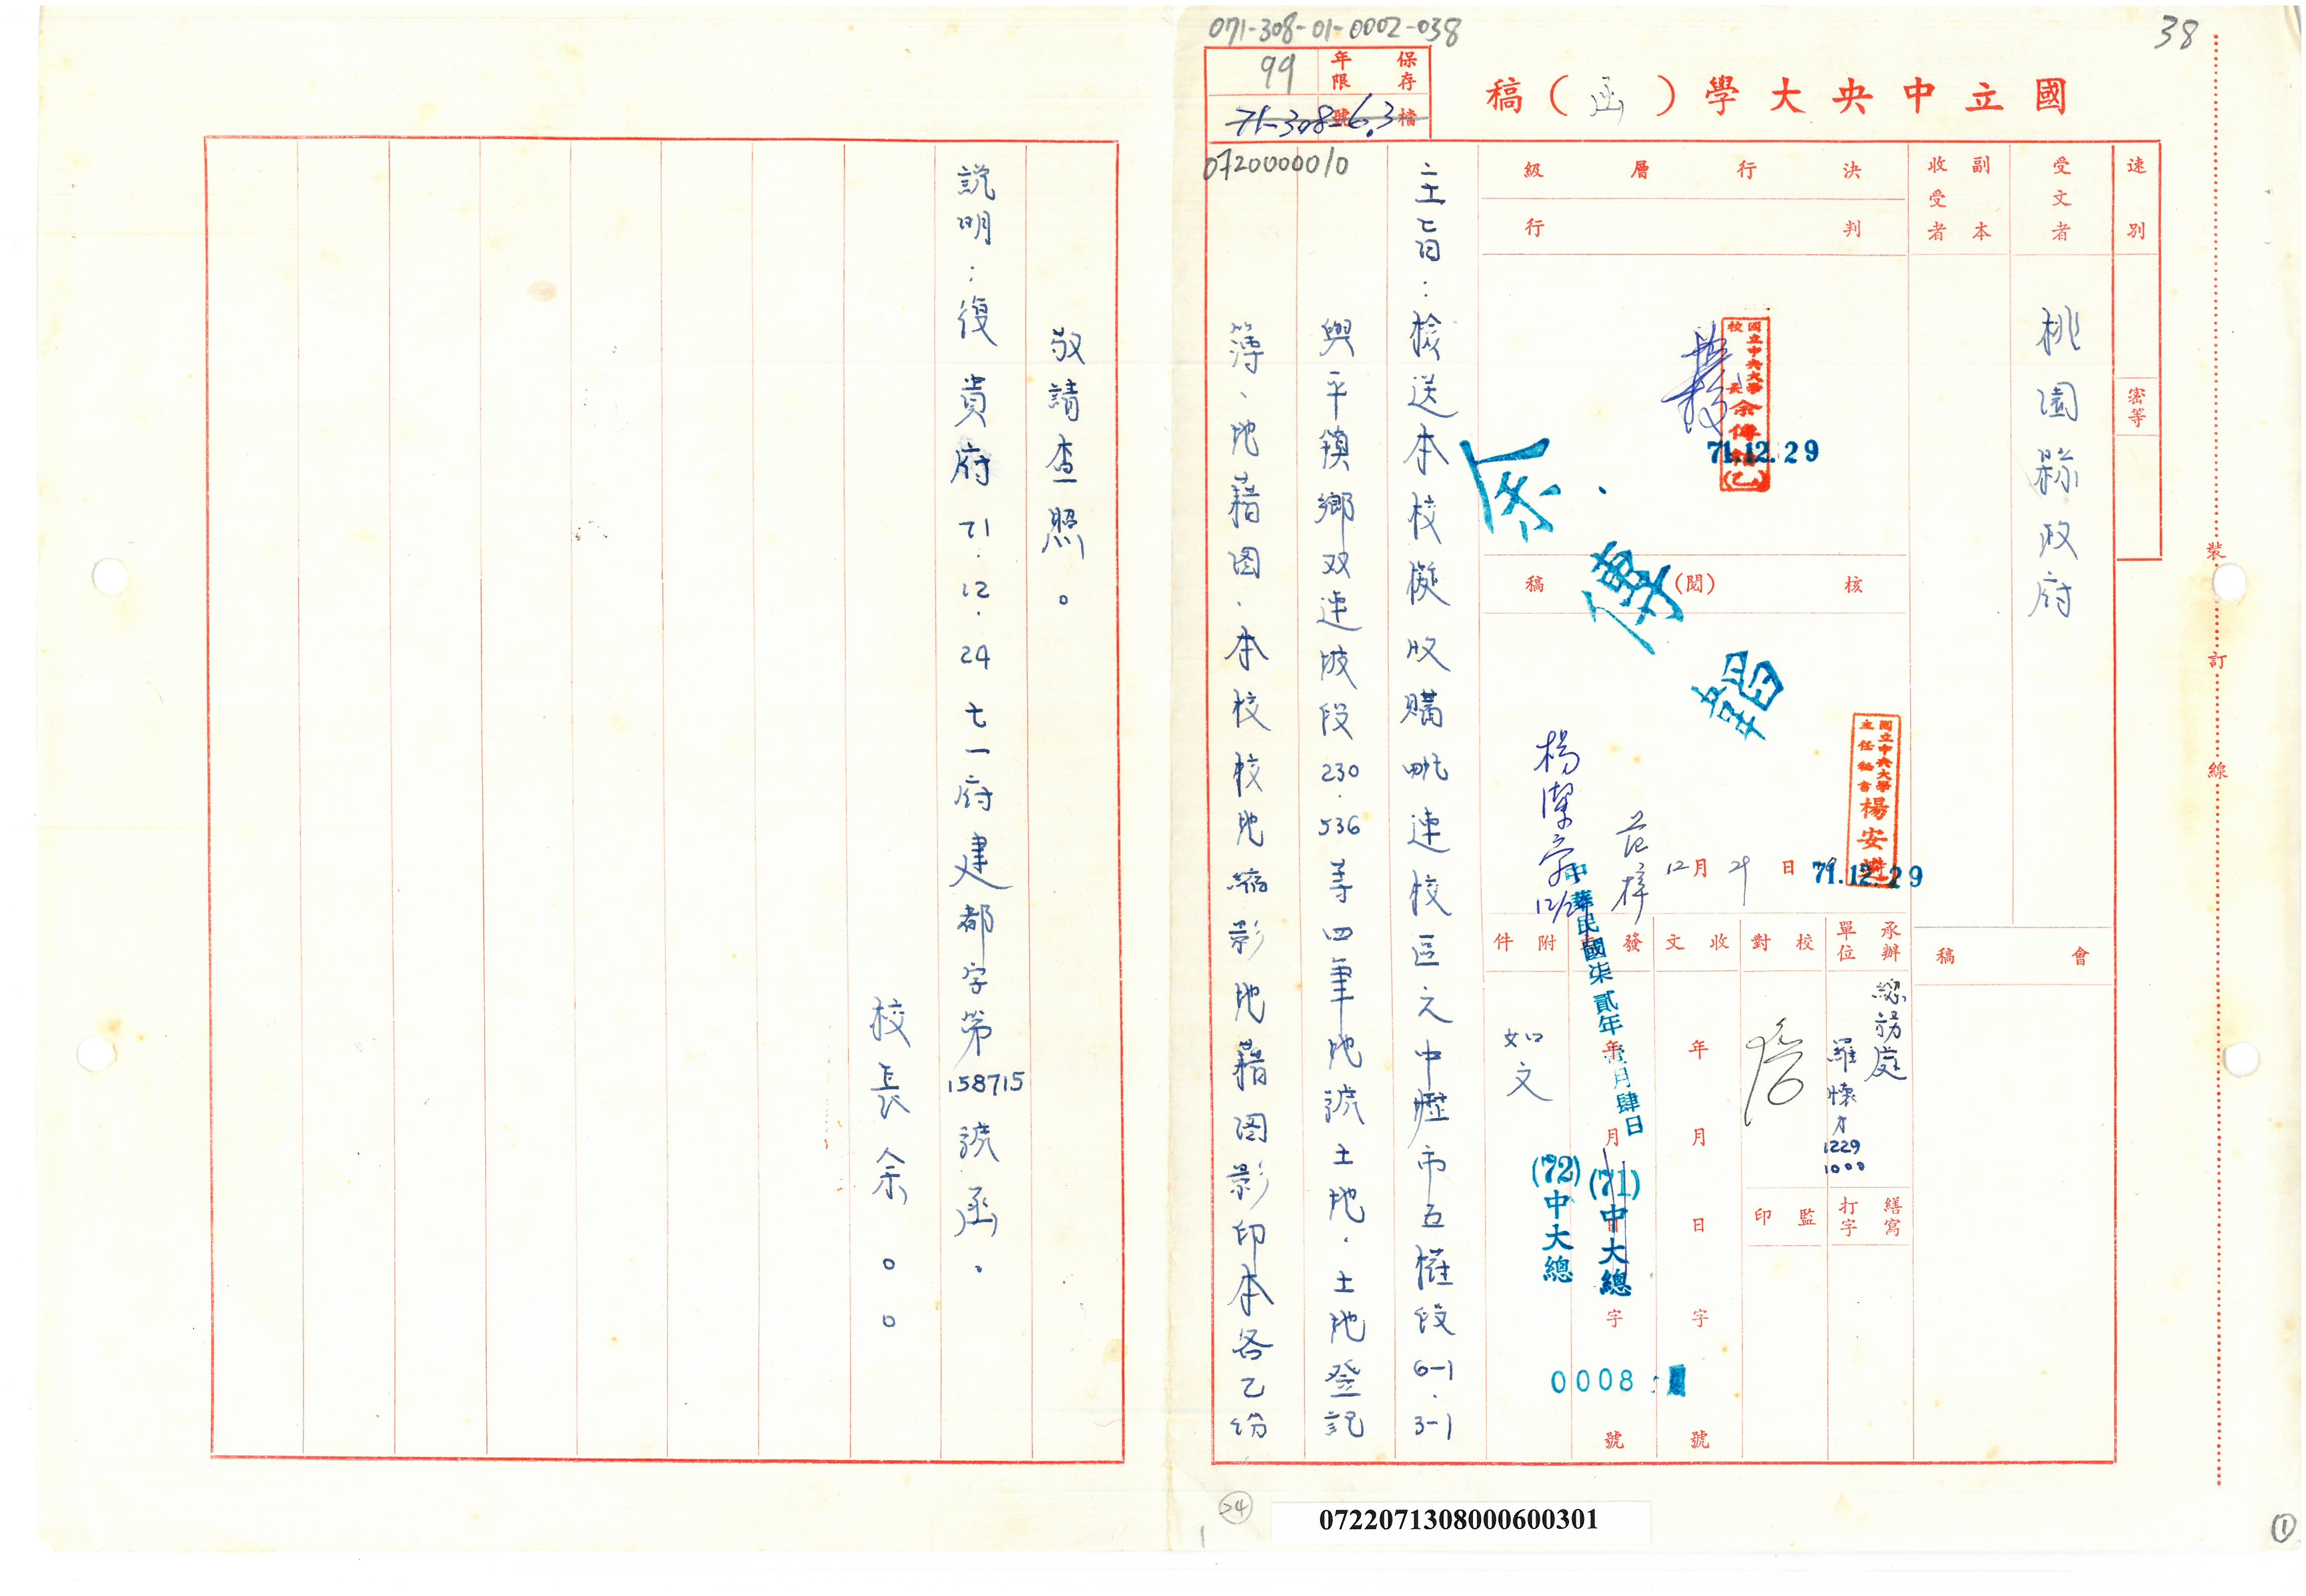 071-308-01-0002-038
38
保存年限
99
檔號
71-308-6.3
0720000010
國立中央大學（函）稿
速別
密等
受文者
桃園縣政府
副本收受者
會稿
決行層級
判行
國立中央大學
校長余傳韜(乙)
71.12.29
余傳韜
核(閱)稿
國立中央大學
主任秘書楊安
71.12.29
12月29日
范梓
楊潔
承辦單位
總務處
羅懷才
1229
1000
繕寫
打字
校對
監印
收文
年月日字號
發
中華民國柒貳年壹月肆日
年月日字號
(71)中大總
(72)中大總
0008
附件
如文
主旨：檢送本校擬收購毗連校區之中壢市五權段6-1．3-1
與平鎮鄉双連坡段230．536等四筆地號土地．土地登記
簿、地藉图．本校校地縮影地藉图影印本各乙份
敬請查照。
說明：復貴府71．12．24七一府建都字第158715號函。
校長余○○
裝訂線
24
0722071308000600301
①